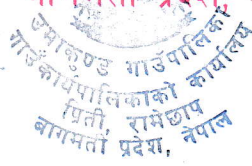 उमाकुण्ड गाउँपालिका
गाउँकार्यपालिकाको कार्यालय
प्रिती, रामेछाप
बागमती प्रदेश, नेपाल